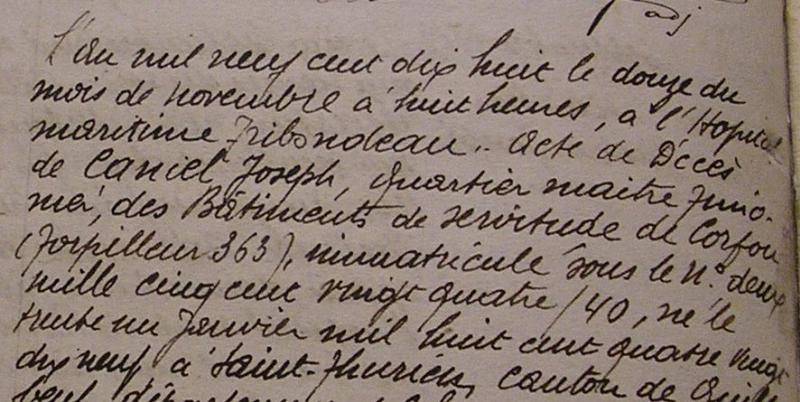 adj
L'an mil neuf cent dix huit le douze du
mois de novembre à huit heures, à l'Hopital
maritime Tribondeau.. Acte de Décès
de Caniel Joseph, quartier maitre
des Bâtiments de servitude de Corfou
(Torpilleur 363), immatriculé sous le N.° deux
mille cinq cent vingt quatre/40, né le
trente un Janvier mil huit cent quatre vingt
dix neuf à Saint-Thurien, canton de Quille
beuf, département